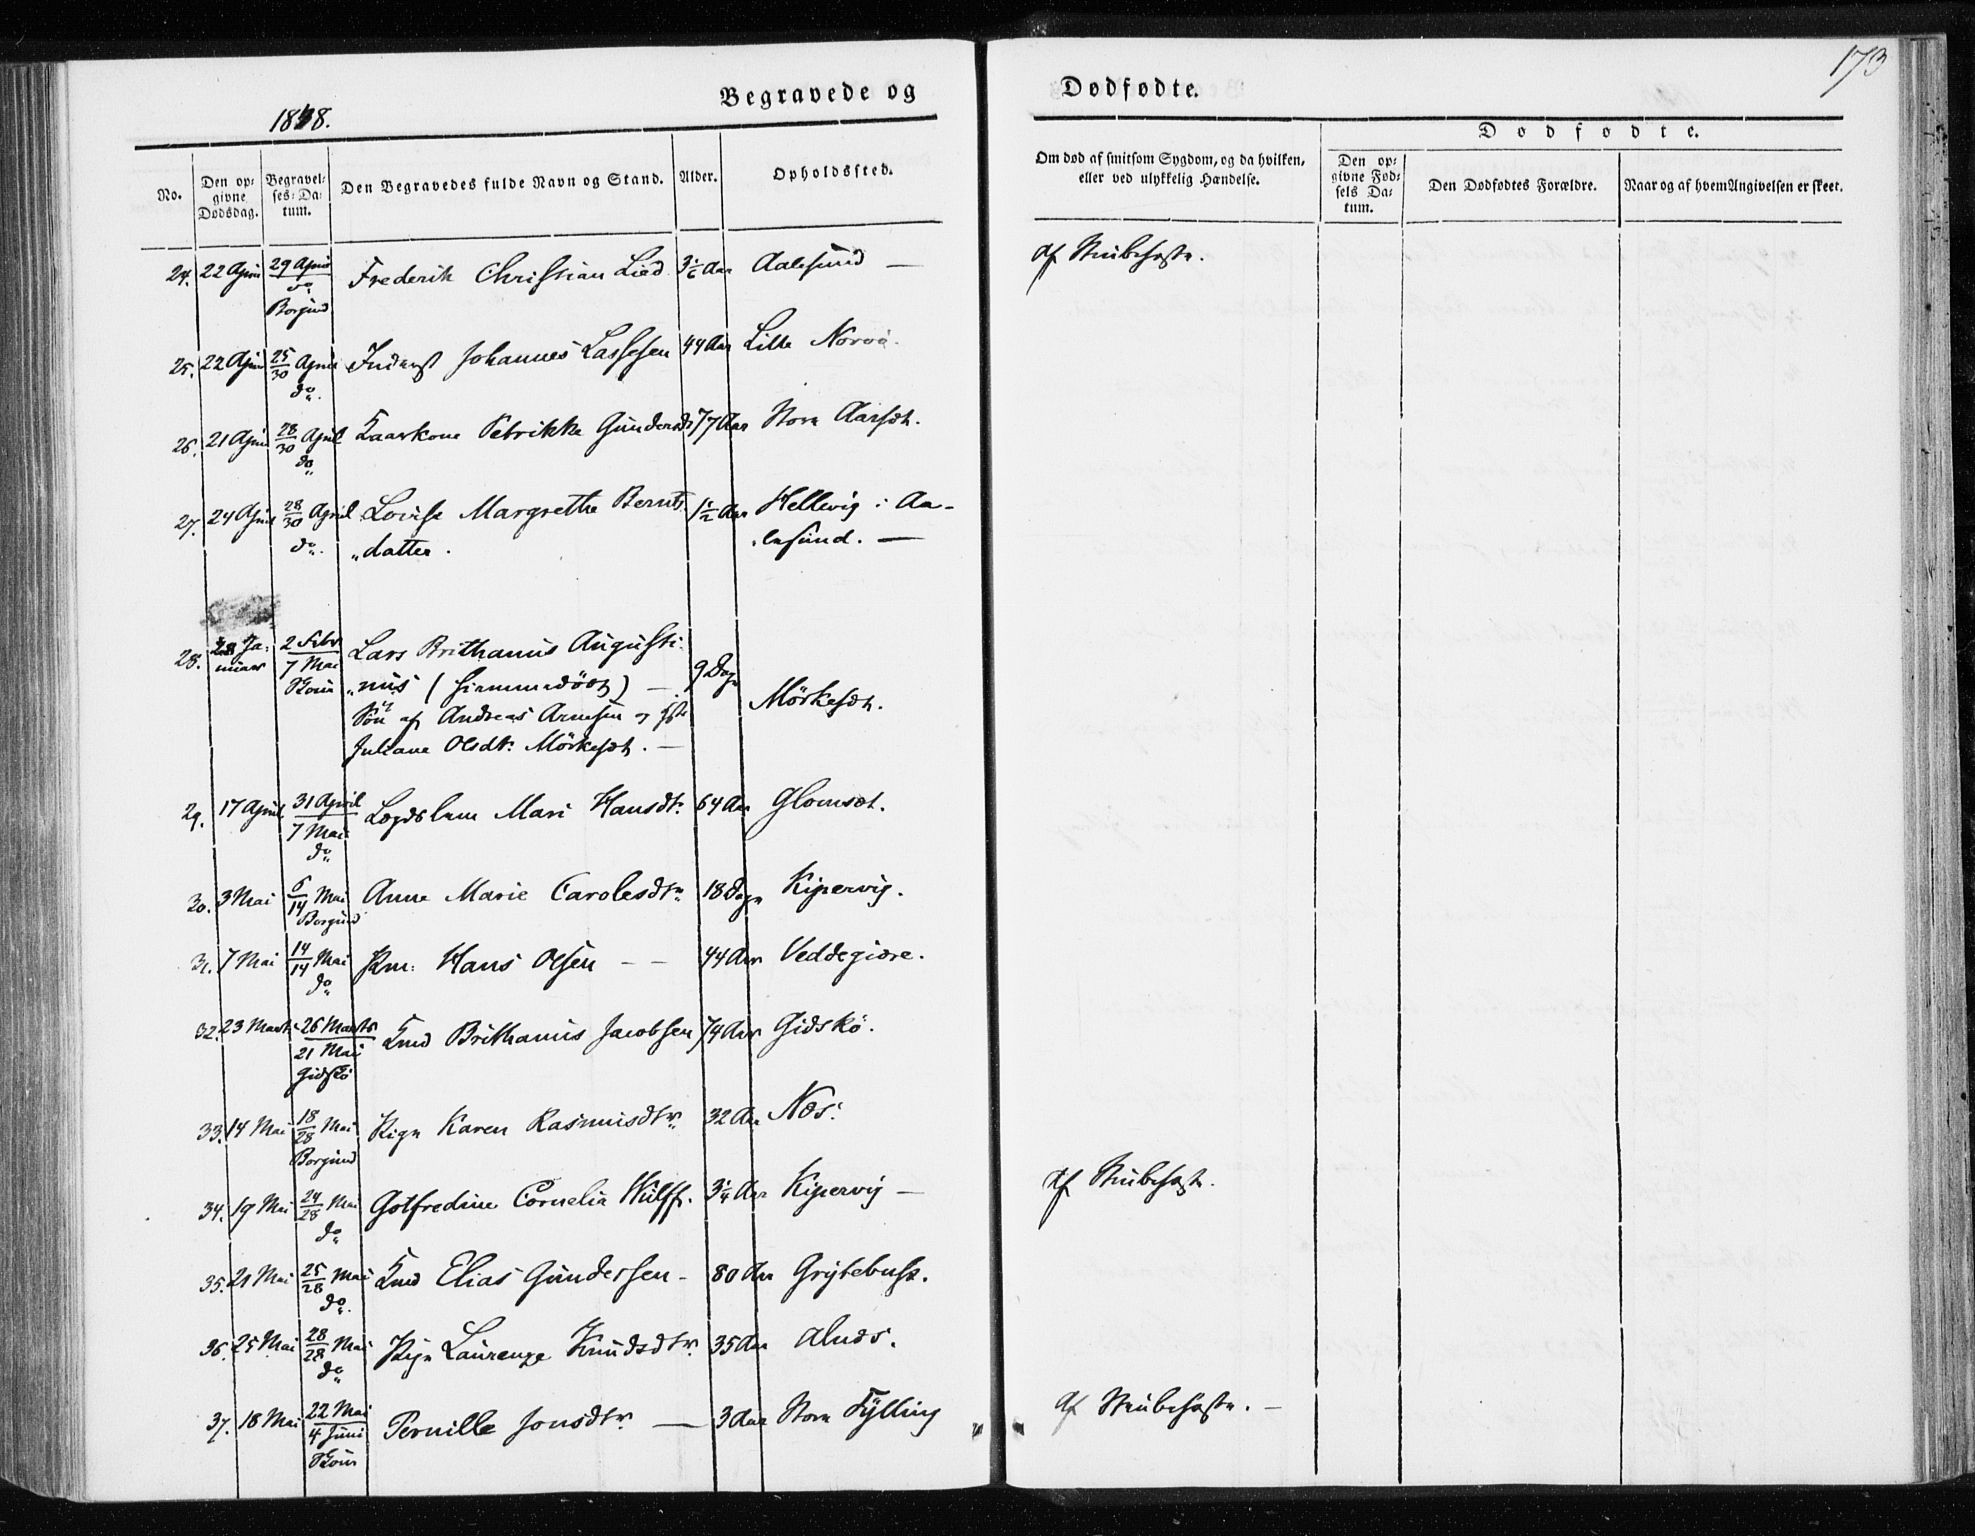 173
Begravede og Dødfødte.
1848.
No.
Den opgivne Dødsdag.
Begravelses-Datum.
Den Begravedes fulde Navn og Stand.
Alder.
Opholdssted.
Om død af smitsom Sygdom, og da hvilken, eller ved ulykkelig Hændelse.
Dødfødte.
Den opgivne Fødsels Datum.
Den Dødfødtes Forældre.
Naar og af hvem Angivelsen er skeet.
24. 22 April 29 April Frederik Christian Lied Aar Aalesund — Af Strubehoste.
do
Borgund
25. 22 April 25/30 April Inderst Johannes Lassesen 44 Aar Lille Norvø.
do.
26. 21 April 28/30 April Kaarkone Petrikke Gundersdr 77 Aar Store Aarsæt.
do
27. 24 April 28/30 April Lovise Margrethe Bernts 1½ Aar Hellevig i Aa-
do. „datter. „lesund. —
28. 28 Ja- 2 Febr Lars Brithanus Augusti- 9 Dage
nuar 7 Mai „nus (hiemmedøbt) — Mörkesæt.
Skoue Sön af Andreas Arnesen og Hst
Juliane Olsdtr Mörkesæt. —
29. 17 April 31 April Lægdslem Mari Hansdtr 64 Aar Glomsæt.
7 Mai
do
30. 3 Mai 6/14 Mai Anne Marie Carolesdtr 18 Dage Kipervig.
Borgund
31. 7 Mai 14/14 Mai Hans Olsen — — 44 Aar Veddegiære.
do
32. 23 Marts 26 Marts Kmd Brithanus Jacobsen 74 Aar Gidskö.
21 Mai
Gidskö
33. 14 Mai 18/28 Mai Pige Karen Rasmusdtr 32 Aar Næs.
Borgund
34. 19 Mai 24/28 Mai Gotfredine Cornelia Wulff. 3¼ Aar Kipervig — Af Strubehoste.
do
35. 21 Mai 25/28 Mai Kmd Elias Gundersen — 80 Aar Grytebust.
do.
36. 25 Mai 28/28 Mai Pige Laurenze Knudsdtr 35 Aar Alnæs.
do
37. 18 Mai 22 Mai Pernille Jonsdtr — 3 Aar Store Fylling Af Strubehoste. —
4 Juni
Skoue